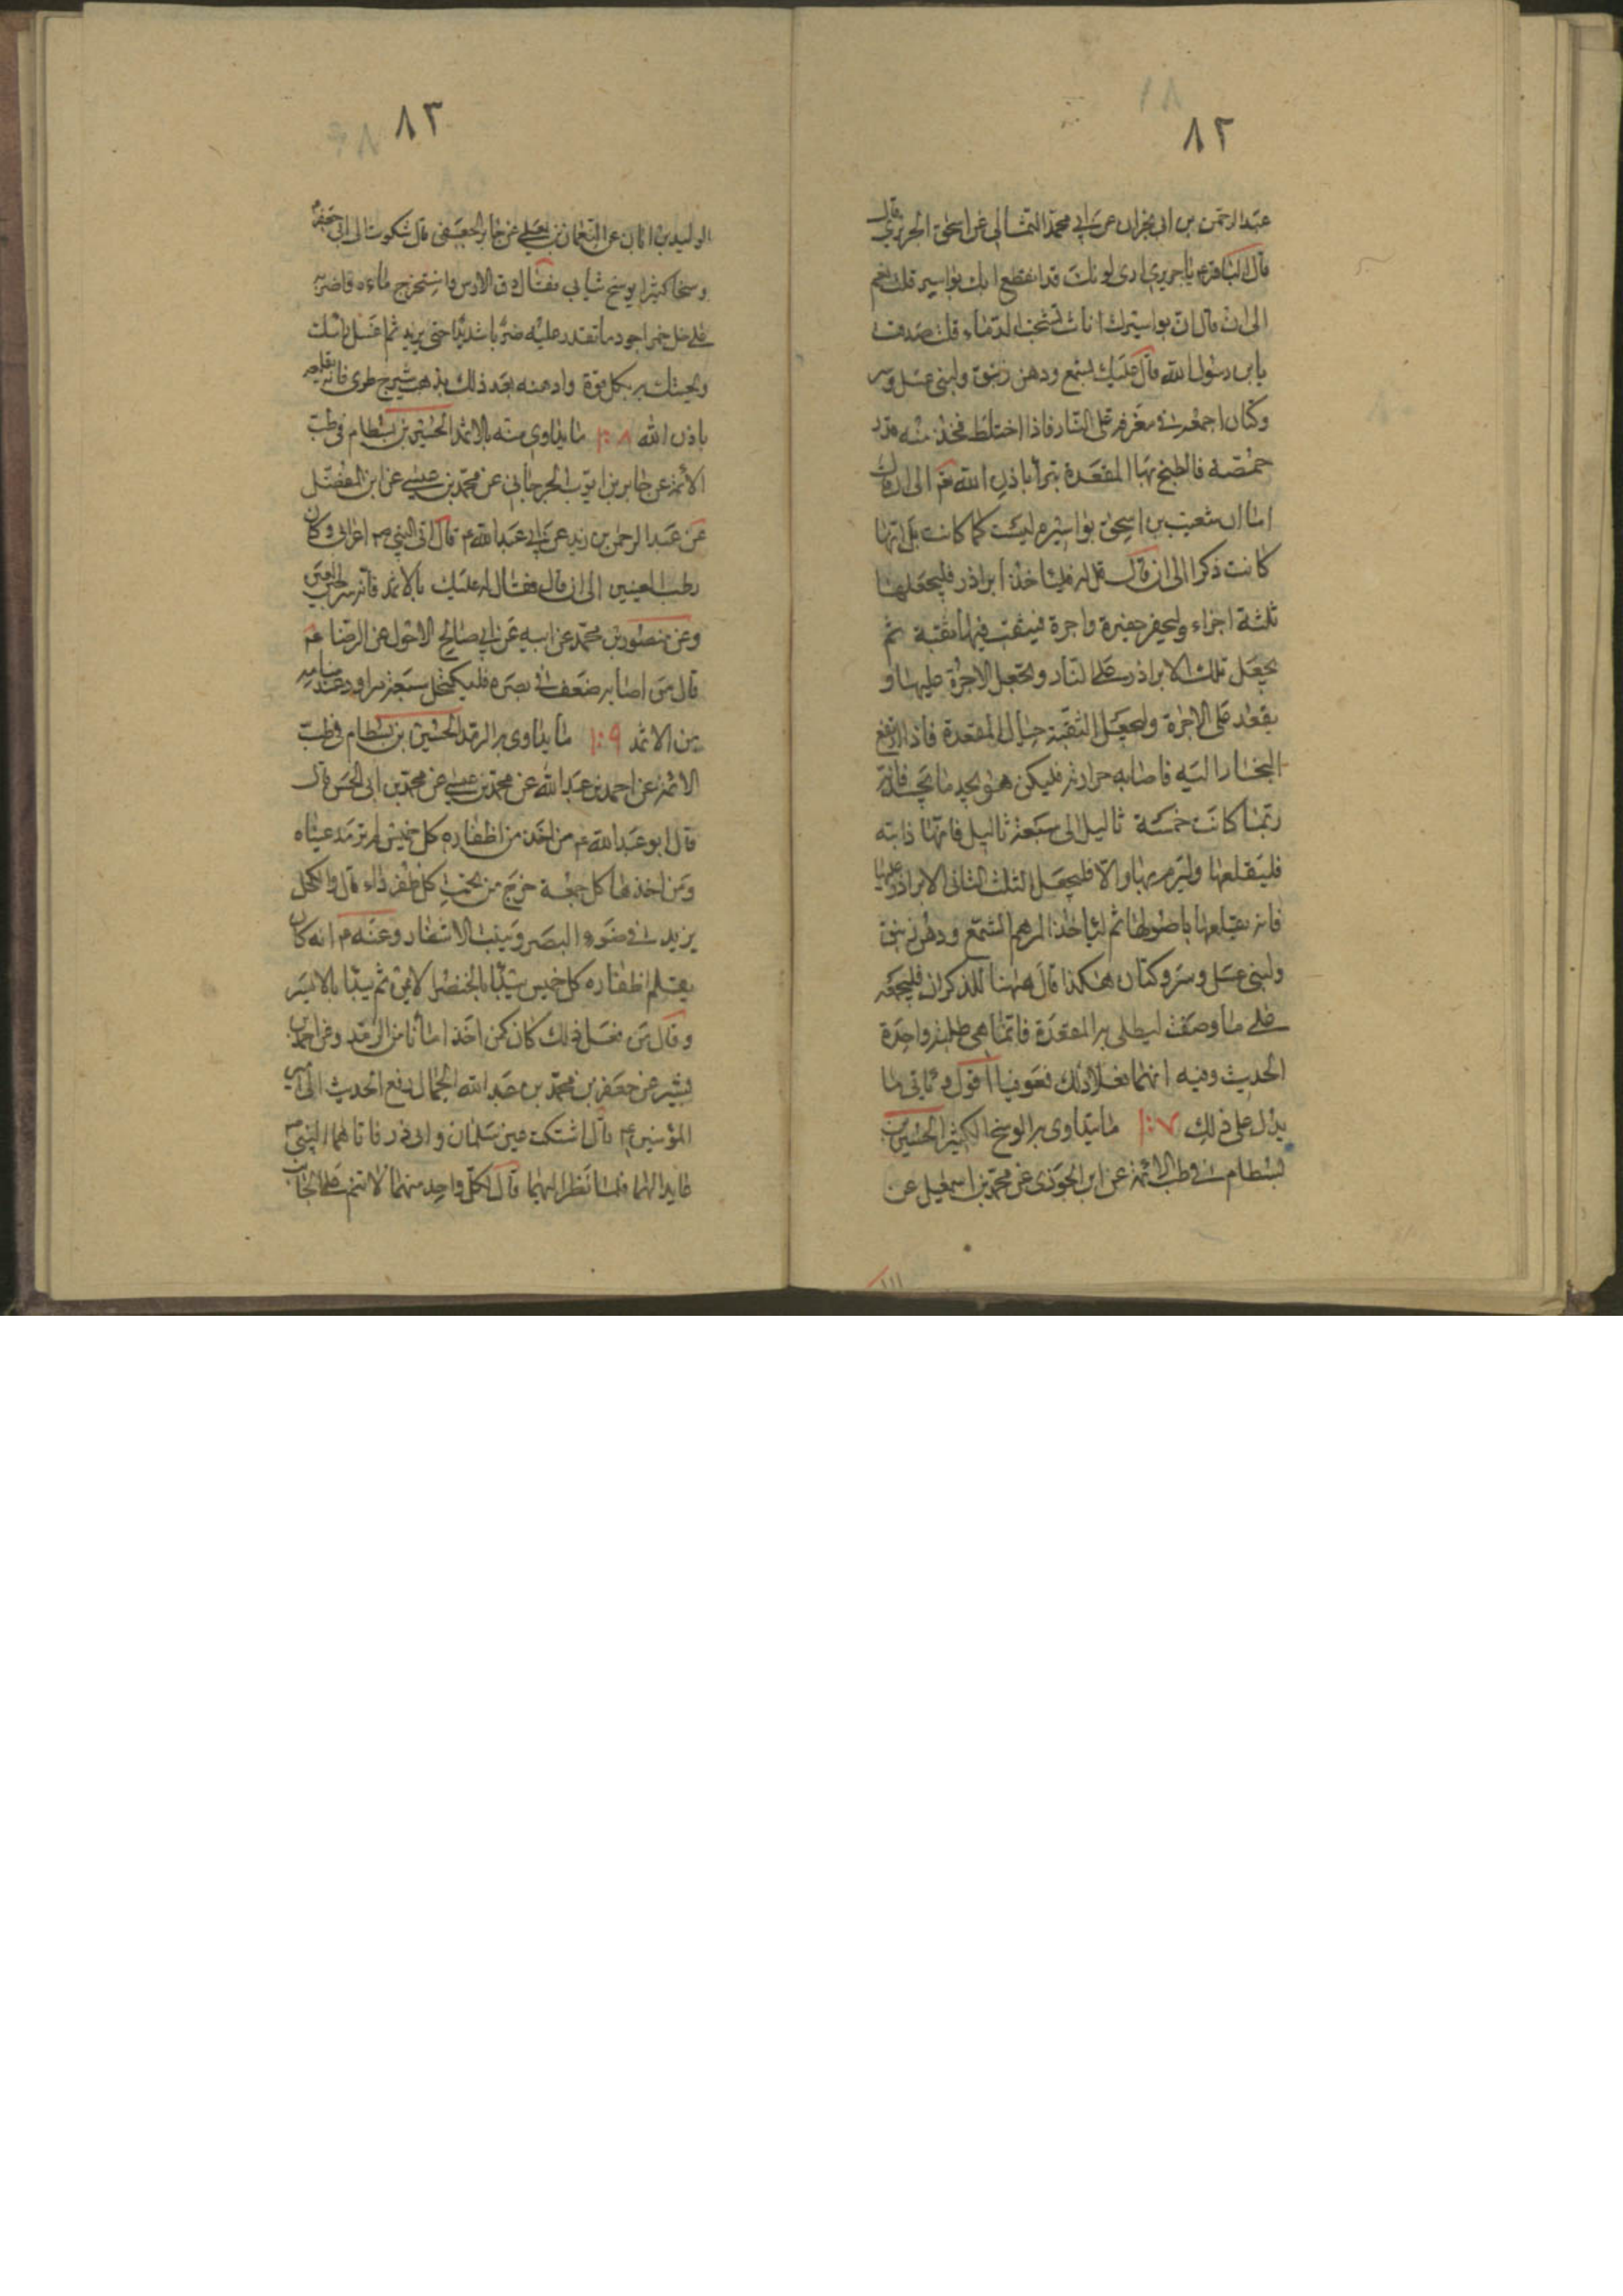 ٨٢
عبد الرحمن بن ابى نجران عن ابى محمد الثمالى عن اسحق الجريرى قال
قال الباقر ع يا جريرى ارى لونك قد انقطع ابك بواسير قلت نعم
الى ان قال ان بواسيرك اناث تشخب الدماء قلت صدقت
يابن رسول الله قال عليك بشمع ودهن زنبق ولبنى عسل وسر
وكتان اجمعه فى مغرفة على النار فاذا اختلط فخذ منه قدر
حمصة فالطخ بها المقعدة تبرأ باذن الله نعم الى ان قال
اما ان شعيب بن اسحق بواسيره ليست كما كانت بل انها
كانت ذكرا الى ان قال قل له فلياخذ ابراذر فليجعلها
ثلثة اجزاء وليحفر حفيرة واجرة فيثقب فيها ثقبة ثم
يجعل تلك الابراذر على النار وتجعل الاجرة عليها و
يقعد على الاجرة وليجعل الثقبة حيال المقعدة فاذا ارتفع
البخار اليه فاصابه حرارته فليكن هو يعد ما يجد فانه
ربما كانت خمسة ثاليل الى سبعة ثاليل فانها ذابته
فليقلعها وليرم بها والا فليجعل الثلث الثانى الابراذر عليها
فانه يقلعها باصولها ثم لياخذ المرهم الشمع ودهن زنبق
ولبنى عسل وسر وكتان هكذا قال ههنا للذكران فليجمعه
على ما وصفت ليطلى به المقعدة فانما هى طلية واحدة
الحديث وفيه انهما فعلا ذلك فعوفيا اقول و ياتى ما
يدل على ذلك ١٠٧ ما يتداوى به الوسخ الكثير الحسين بن
بسطام فى طب الائمة عن ابن الجوزى عن محمد بن اسمعيل عن
٨٣
الوليد بن ابان عن النعمان بن يعلى عن جابر الجعفى قال شكوت الى ابى جعفر ع
وسخا كثيرا يوسخ ثيابى فقال دق الاس واستخرج ماءه واضربه
على خل خمر اجود ما تقدر عليه ضربا شديدا حتى يزبد ثم اغسل راسك
ولحيتك به بكل قوة وادهنه بعد ذلك بدهن شيرج طرى فانه يقلعه
باذن الله ١٠٨ ما يتداوى منه بالاثمد الحسين بن بسطام فى طب
الائمة عن جابر بن ايوب الجرجانى عن محمد بن عيسى عن ابن المفضل
عن عبد الرحمن بن زيد عن ابى عبد الله ع قال اتى النبى ص اعرابى وكان
رطب العينين الى ان قال فقال له عليك بالاثمد فانه سراج العين
وعن منصور بن محمد عن ابيه عن ابى صالح الاحول عن الرضا ع
قال من اصابه ضعف فى بصره فليكتحل سبعة مراود عند منامه
من الاثمد ١٠٩ ما يتداوى به الرمد الحسين بن بسطام فى طب
الائمة عن احمد بن عبد الله عن محمد بن عيسى عن محمد بن ابى الحسن قال
قال ابو عبد الله ع من اخذ من اظفاره كل خميس لم ترمد عيناه
ومن اخذها كل جمعة خرج من تحت كل ظفر داء قال والكحل
يزيد فى ضوء البصر وينبت الاشفار وعنه ع انه كان
يقلم اظفاره كل خميس يبدا بالخنصر الايمن ثم يبدا بالايسر
وقال من فعل ذلك كان كمن اخذ امانا من الرمد وعن احمد بن
بشير عن جعفر بن محمد بن عبد الله الجمال رفع الحديث الى امير
المؤمنين ع قال اشتكت عين سلمان وابى ذر فاتاهما النبى ص
عايدا لهما فلما نظر اليهما قال لكل واحد منهما لا تنم على الجانب